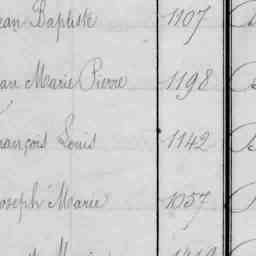 ean Baptiste 1107
ean Marie Pierre 1198
rançois Louis 1142
oseph Marie 1057